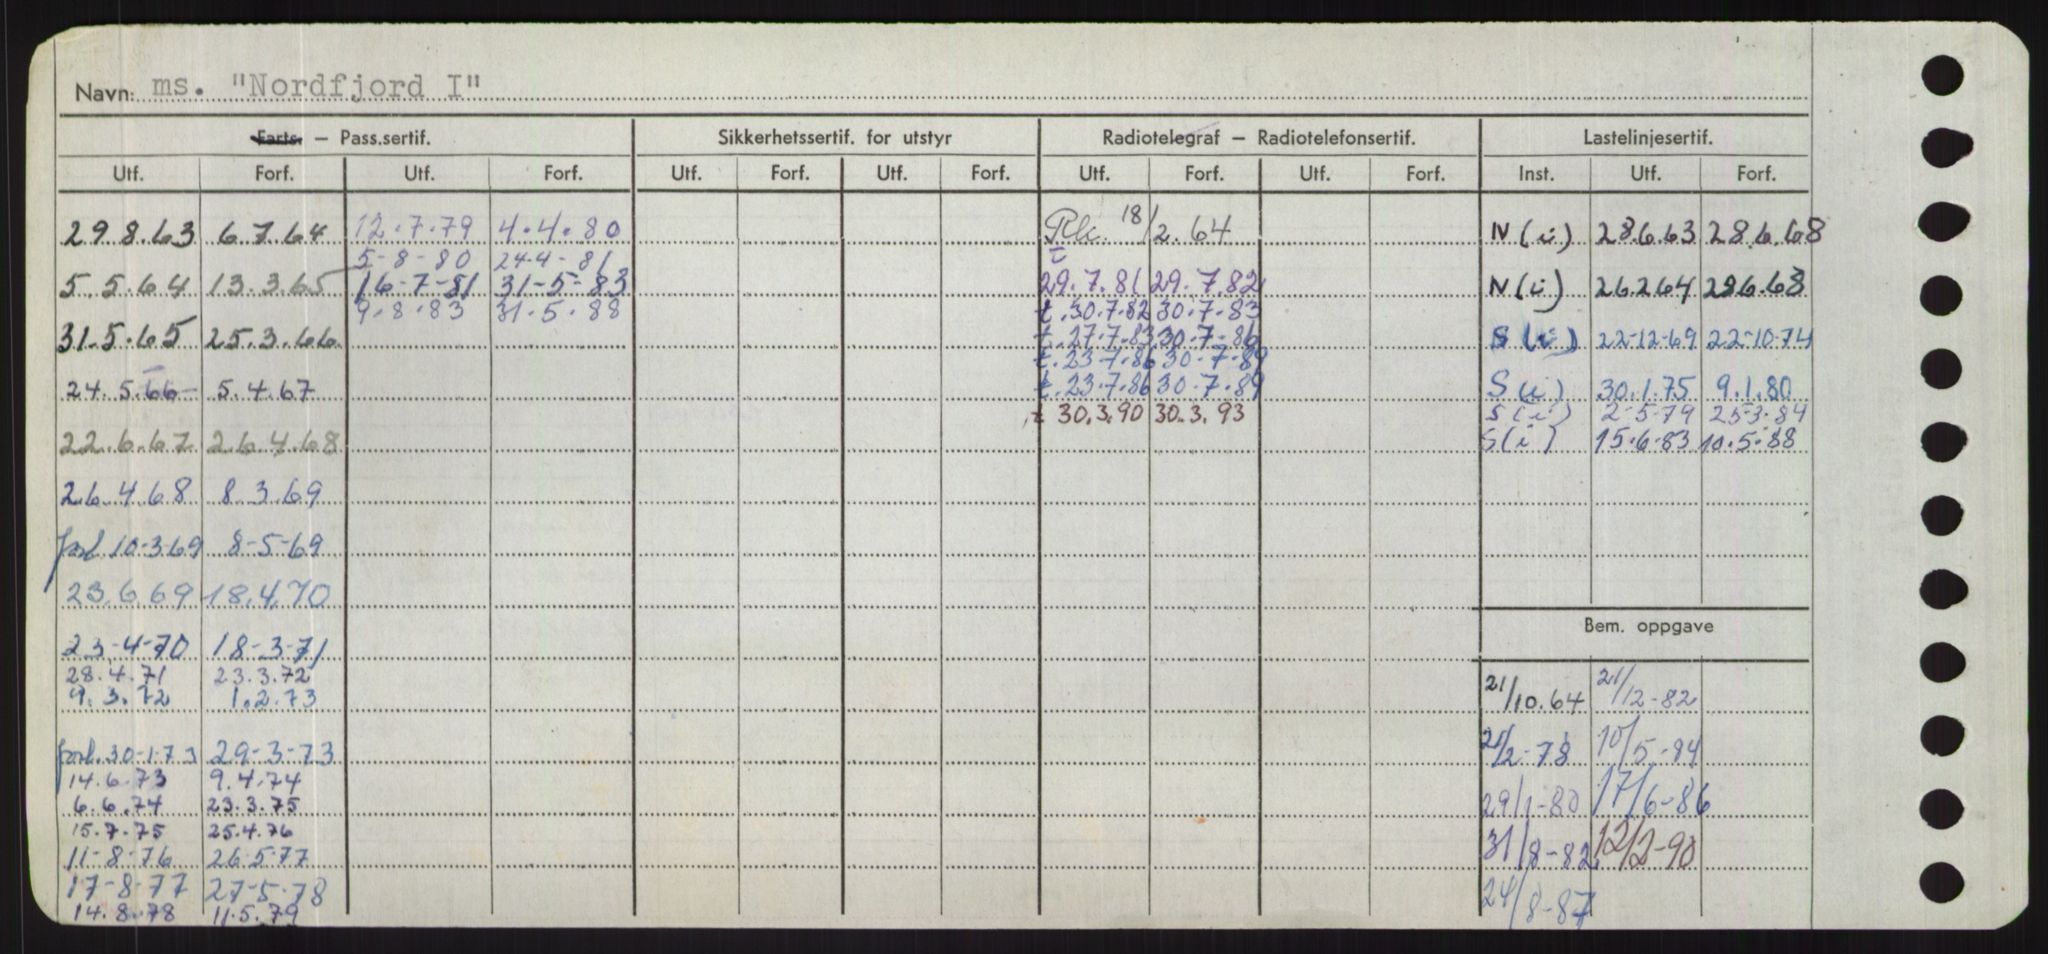 Navn: ms. "Nordfjord I"
Farts. — Pass.sertif. Sikkerhetssertif. for utstyr Radiotelegraf — Radiotelefonsertif. Lastelinjesertif.
Utf. Forf. Utf. Forf. Utf. Forf. Utf. Forf. Utf. Forf. Utf. Forf. Inst. Utf. Forf.
29.8.63 6.7.64 12.7.79 4.4.80 18/2.64 N(i) 28.6.63 28.6.68
5-8-80 24.4-81
5.5.64 13.3.65 16-7-81 31-5-83 29.7.81 29.7.82 N(i) 26.2.64 28.6.68
9.8.83 31.5.88 t.30.7.82 30.7.83
31.5.65 25.3.66 t.27.7.83 30.7.86 S(i) 22-12-69 22-10-74
t.23.7.86 30.7.89
24.5.66 5.4.67 t.23.7.86 30.7.89 S(i) 30.1.75 9.1.80
t 30.3.90 30.3.93 S(i) 2-5-79 25-3-84
22.6.67 26.4.68 S(i) 15.6.83 10.5.88
26.4.68 8.3.69
forl. 10-3-69 8-5-69
23.6.69 18.4.70
Bem. oppgave
23-4-70 18-3-71
28.4.71 23.3.72 21/10.64 21/12-82
9.3.72 1.2.73
forl. 30-1-73 29-3-73 21/2-78 10/5-84
14.6.73 9.4.74
6.6.74 23.3.75 29/1-80 17/6-86
15.7.75 25.4.76
11-8-76 26-5-77 31/8-82 12/2-90
17-8-77 27-5-78
14.8.78 11.5.79 24/8-87